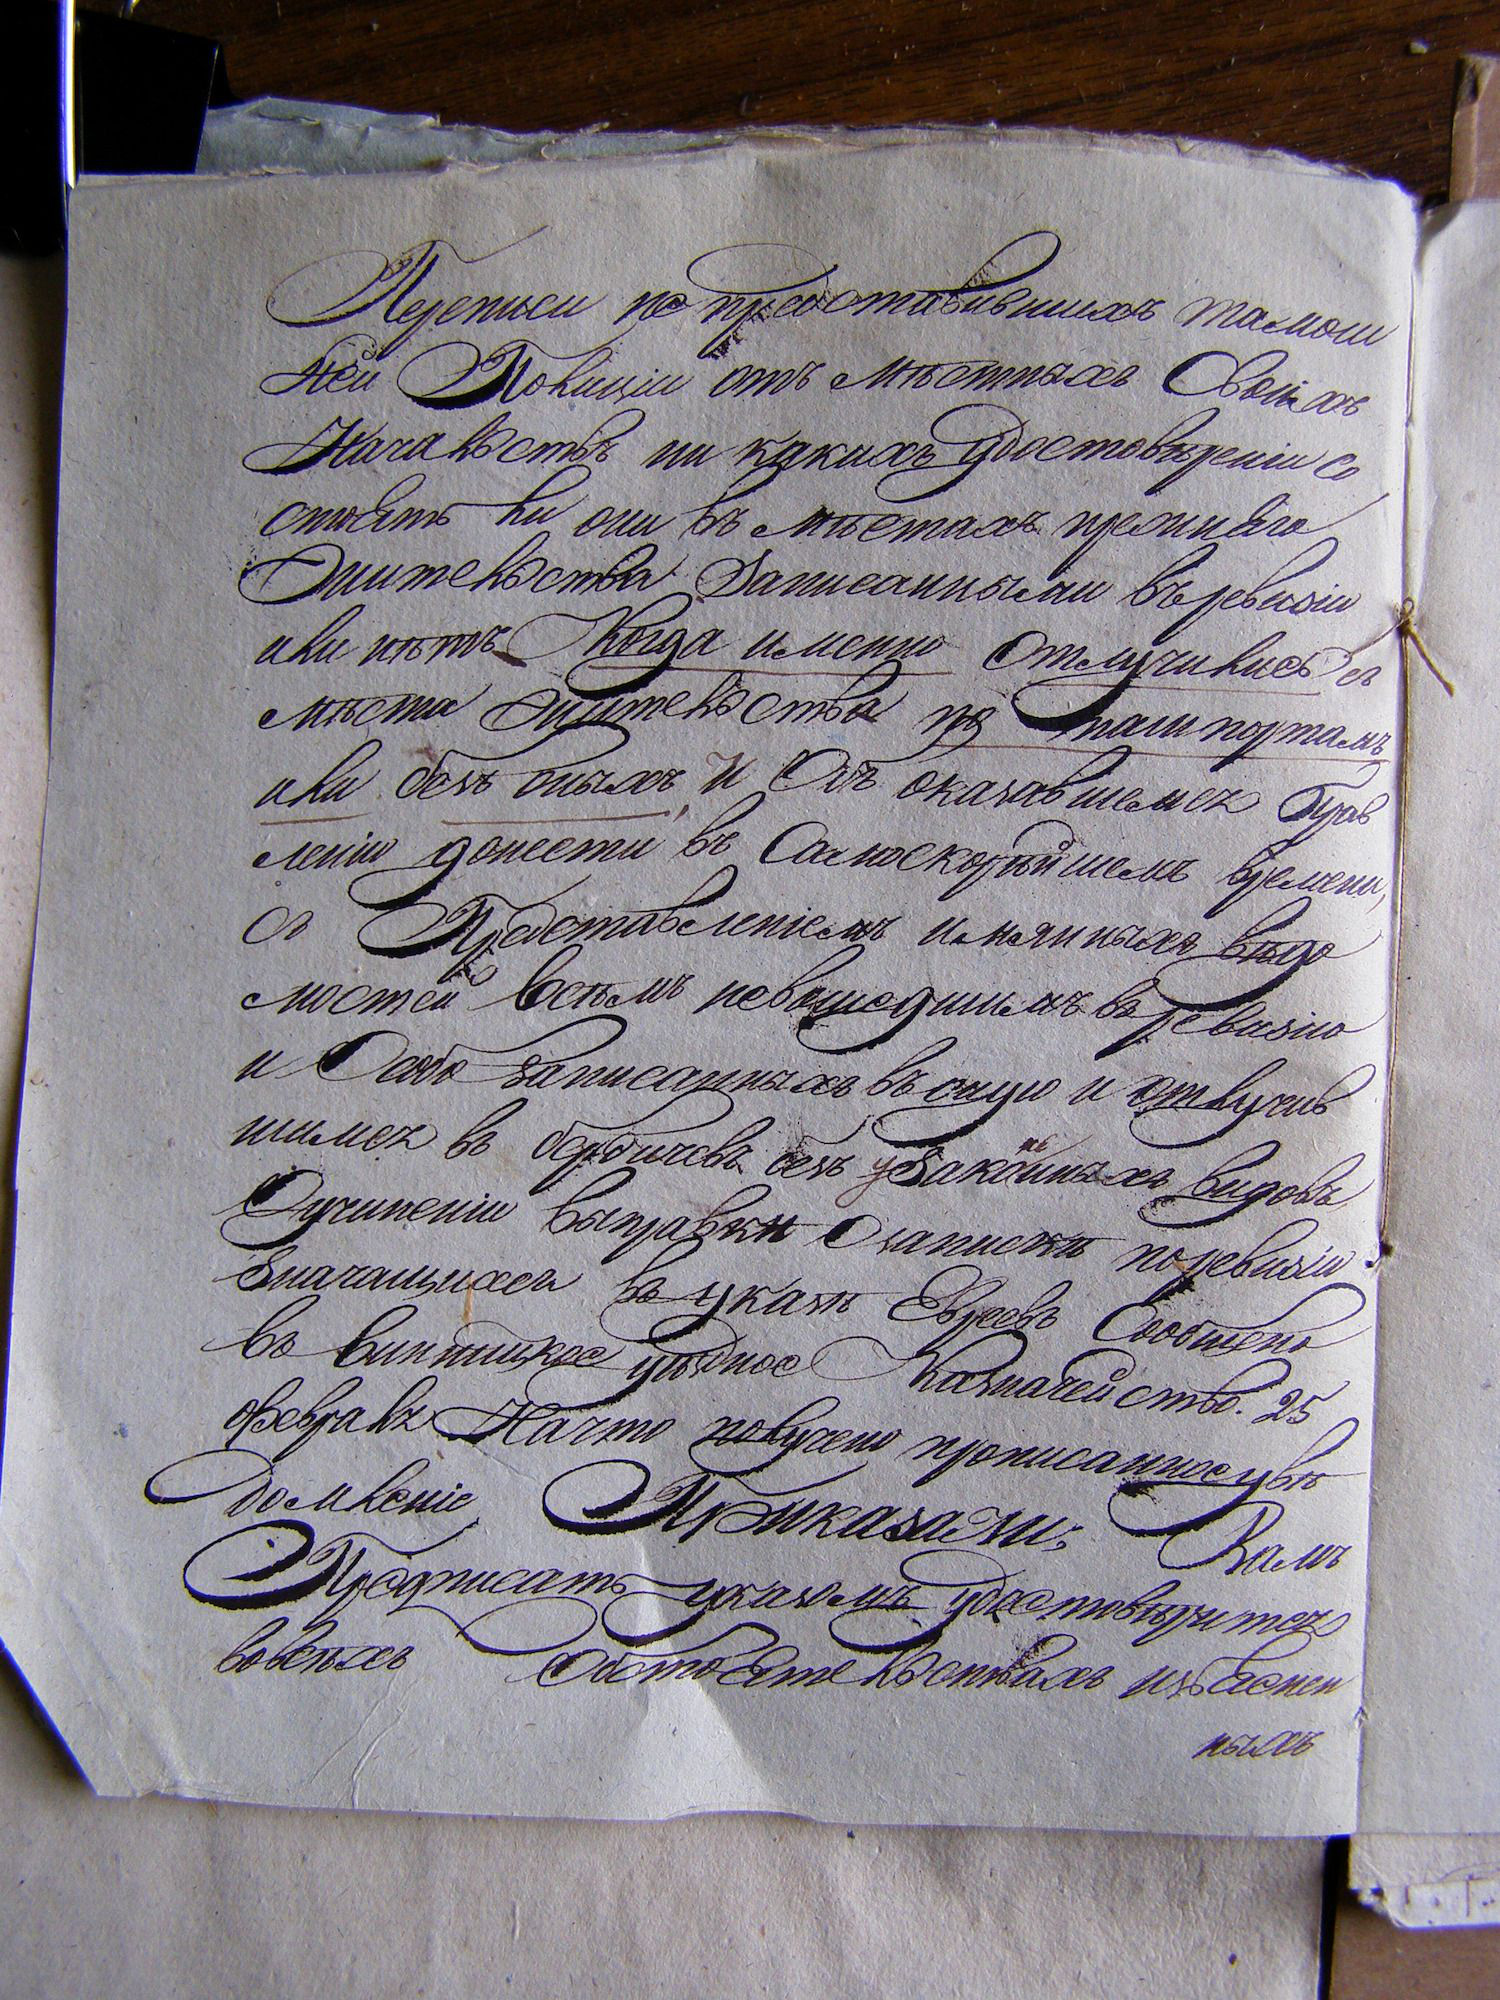 Переписи не представившихъ тамош
ней Полиціи отъ мѣстныхъ Своихъ
Начальствъ ни какихъ удостовѣреніи со
стоятъ ли они въ мѣстахъ прежняго
Жительства Записанными въ ревизіи
или нѣтъ Когда именно Отлучились съ
мѣста Жительства по пашпортамъ
или безъ оныхъ, и Объ оказавшемся Прав
ленію донести въ Самоскорѣйшемъ времени,
съ Представленіемъ имянныхъ вѣдо
мостей всѣмъ невошедшимъ въ Ревизію
и Особо записанныхъ въ оную и отлучив
шимся въ бердичевъ безъ узаконенныхъ видовъ
Оучиненіи выправки Озапискѣ поревизіи
Значащихся въ указѣ Евреевъ Сообщено
въ винницкое уѣздное Казначейство. 25
февраля Начто получено прописанное увѣ
домленіе Приказали: Вамъ
Предписать указомъ удостовѣрится
вовсѣхъ обстоятельствахъ изъяснен
ныхъ